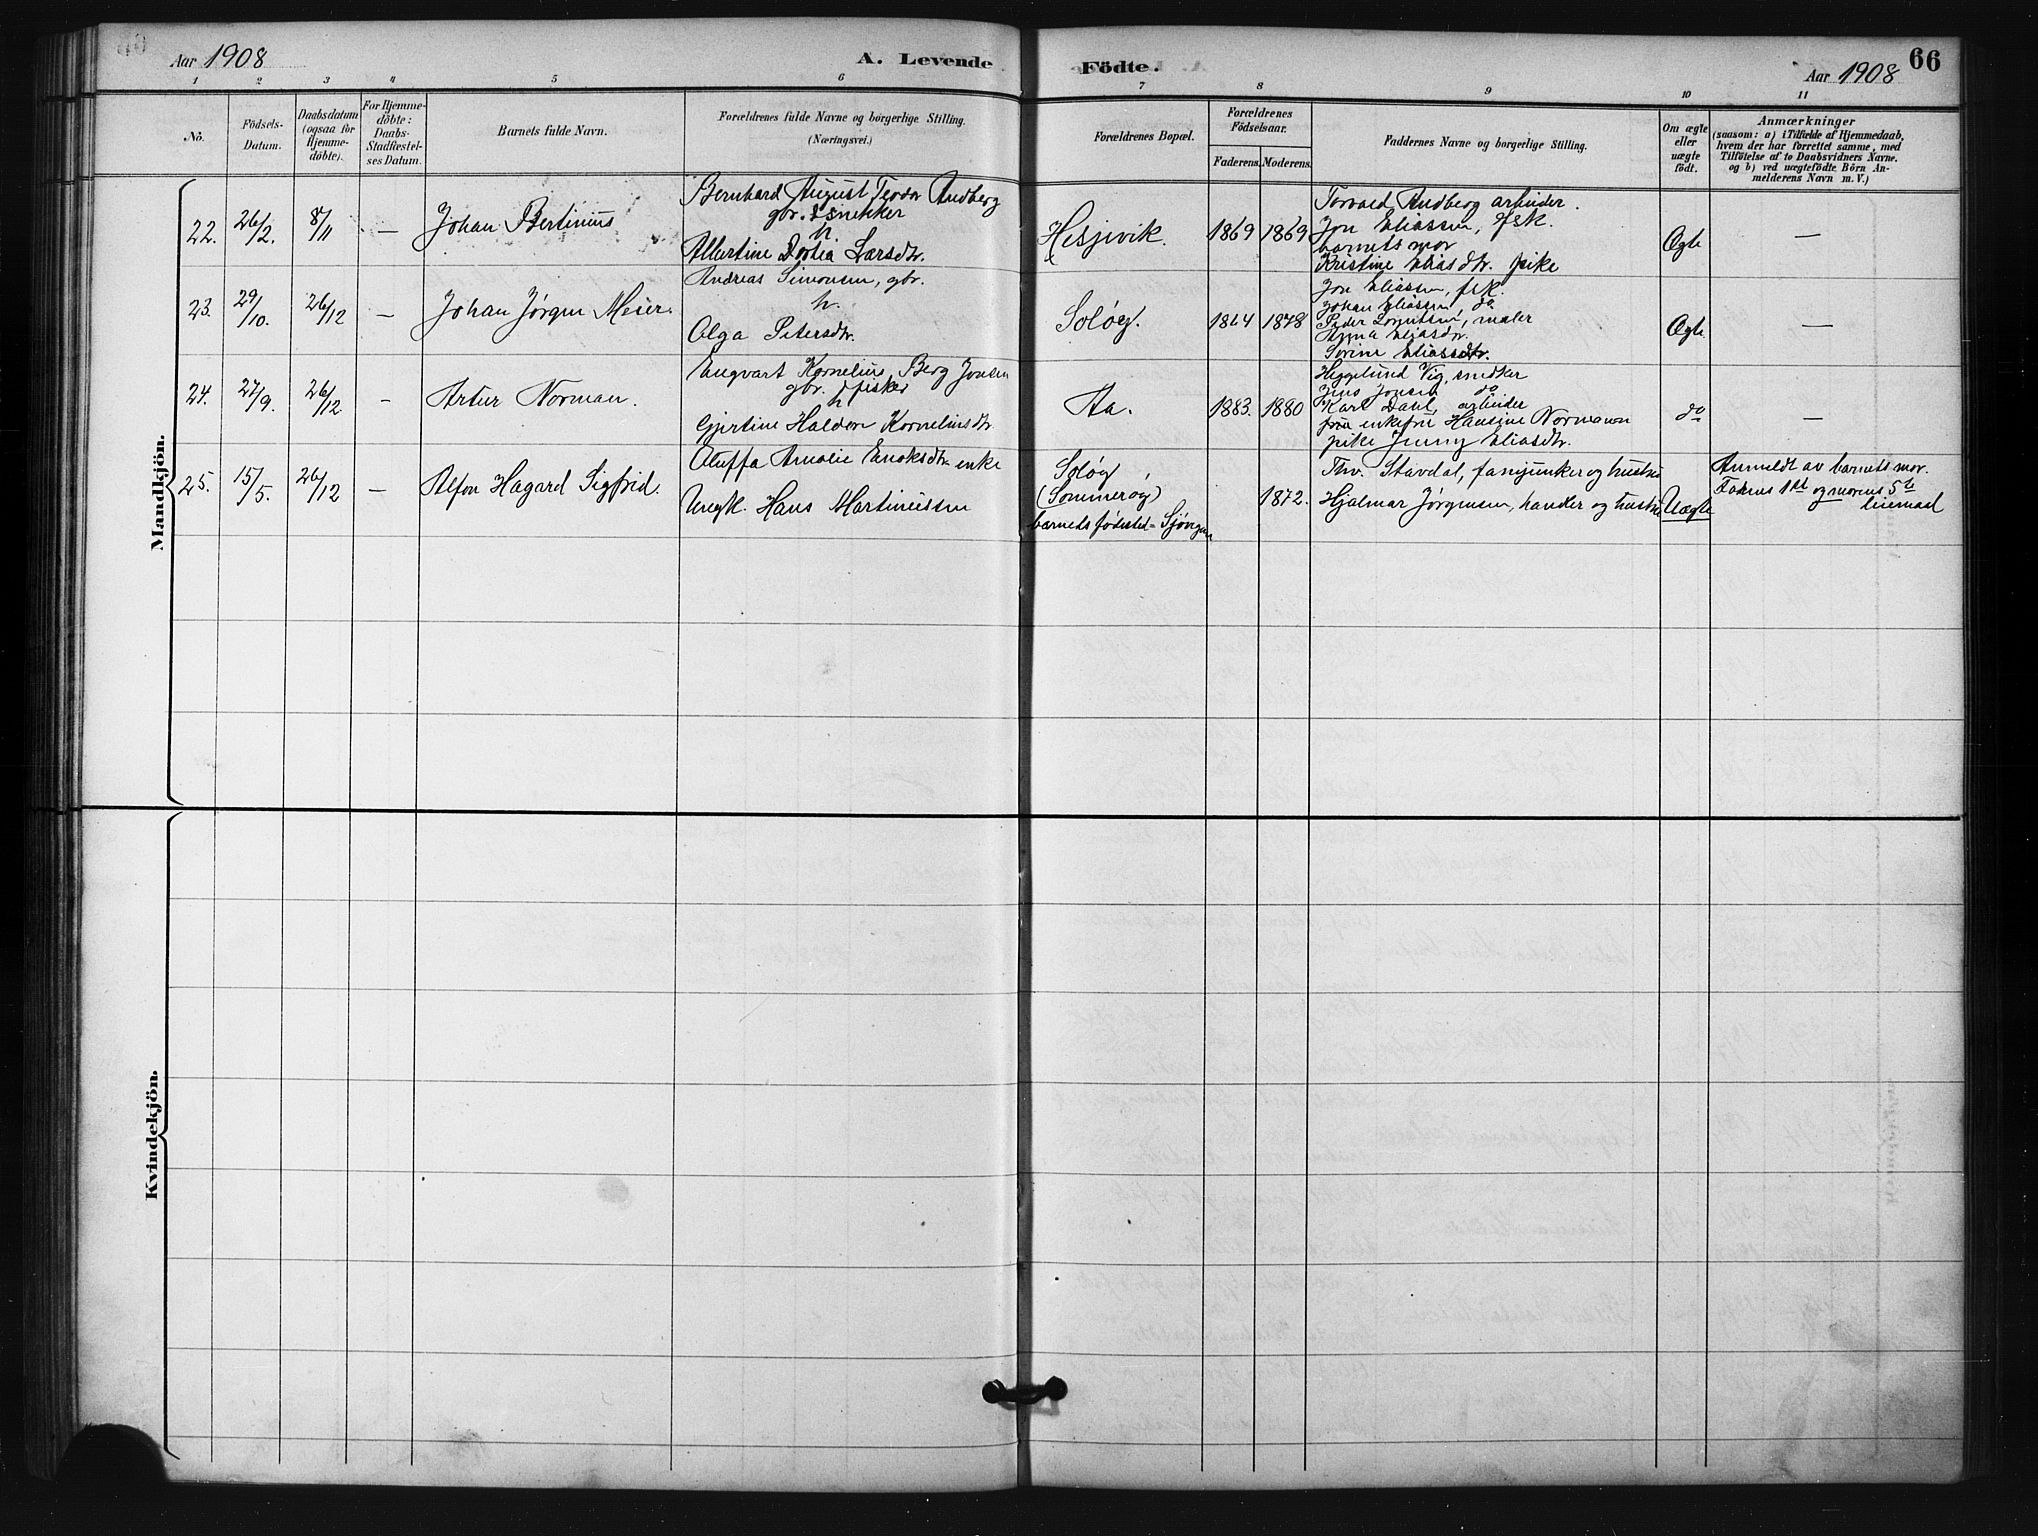 Aar 1908
A. Levende
Födte.
Aar 1908
66
1 2 3 4 5 6 7 8 9 10 11
No.
Födsels-
Datum.
Daabsdatum
(ogsaa for
Hjemme-
döbte).
For Hjemme-
döbte:
Daabs-
Stadfæstel-
ses Datum.
Barnets fulde Navn.
Forældrenes fulde Navne og borgerlige Stilling.
(Næringsvei.)
Forældrenes Bopæl.
Forældrenes
Födselsaar.
Faderens. Moderens.
Faddernes Navne og borgerlige Stilling.
Om ægte
eller
uægte
födt.
Anmærkninger
(saasom: a) i Tilfælde af Hjemmedaab,
hvem der har forrettet samme, med
Tilföielse af to Daabsvidners Navne.
og b) ved uægtefödte Börn An-
melderens Navn m. V.)
Mandkjön.
22.
26/2.
8/11
—
Johan Bertinius
Bernhard August Teodor Andberg
gbr. & snekker
h.
Albertine Dortea Larsdtr.
Hesjevik.
1869 1869
Torvald Andberg arbeider.
Jon Eliassen, fsk.
barnets mor
Kristine Eliasdtr. pike
Ægte
—
23.
29/10.
26/12
—
Johan Jørgen Meier.
Andreas Simonsen, gbr.
h.
Olga Petersdtr.
Soløy.
1864 1878
Jon Eliassen, fsk.
Johan Eliassen do
Peder Lorentsen, maler
Anna Eliasdtr.
Sorine Eliasdtr.
Ægte
—
24.
27/9.
26/12
—
Artur Norman.
Engvart Kornelius Berg Jensen
gbr. & fisker
h
Gjertine Haldora Kornelinsdtr
Aa.
1883. 1880
Heggelund Vig, snedker
Jens Jensen do
Karl Dahl, arbeider
enkefru Hansine Normann
pike Jenny Eliasdtr.
do
—
25.
15/5.
26/12
—
Alfon Hagard Sigfrid.
Oluffa Amalie Enoksdtr. enke
Ungk. Hans Martinussen
Soløy
(Sommerøy)
barnets fødested = Sjøvegan
1872.
Thv. Stavdal, fanejunker og hustru
Hjalmar Jørgensen, handler og hustru
Uægte
Anmeldt av barnets mor.
Faderens 1ste og morens 5te
leiermaal
Kvindekjön.